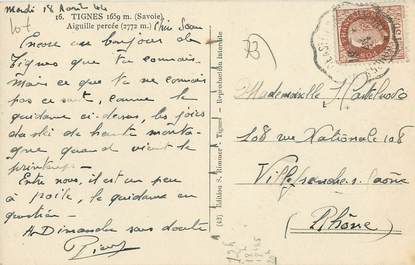 Mardi 18 Août 44
16. TIGNES 1659 m. (Savoie)
Aiguille percée (2772 m.)
Encore un bonjour de
Tignes que tu connais.
Mais ce que tu ne connais
pas ce sont, comme le
guidame ci-dessus, les joies
du ski de haute monta-
gne quand vient le
printemps -
Entre nous, il est un peu
à poile, le guidame en
question -
A Dimanche sans doute
(42) Édition S. Rimmer - Tignes - Reproduction interdite
73
Mademoiselle
108 rue Nationale 108
Villefranche s. Saône
(Rhône)